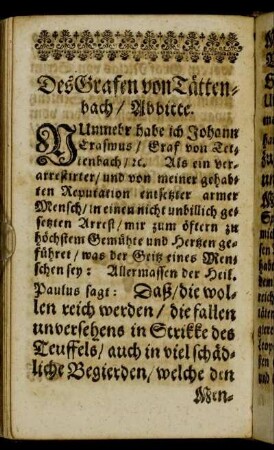 Des Grafen von Tätten-
bach / Abbitte.
NUnmehr habe ich Johann
Erasmus / Graf von Tet-
tenbach / ꝛc. Als ein ver-
arrestirter / und von meiner gehab-
ten Reputation entsetzter armer
Mensch / in einen nicht unbillich ge-
setzten Arrest / mir zum öftern zu
höchstem Gemühte und Hertzen ge-
führet / was der Geitz eines Men-
schen sey: Allermassen der Heil.
Paulus sagt: Daß / die wol-
len reich werden / die fallen
unversehens in Strikke des
Teuffels / auch in viel schäd-
liche Begierden / welche den
Men-